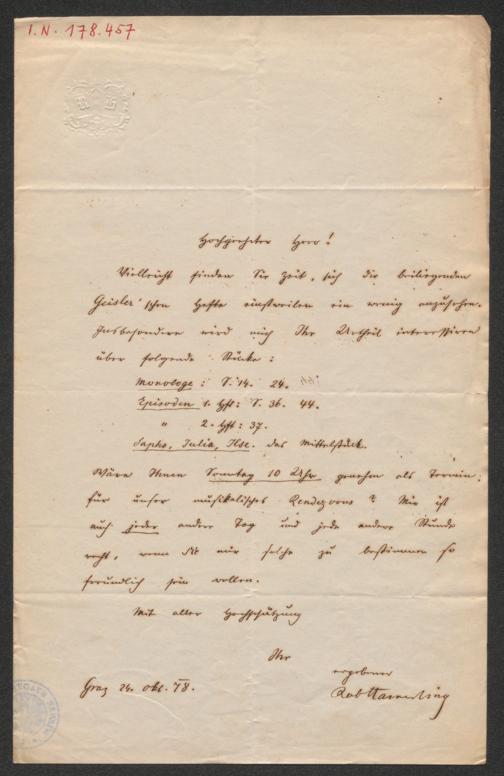 I.N. 178.457
Hochgeehrter Herr!
Vielleicht finden Sie Zeit, sich die beiliegenden
Geisler'schen Hefte einstweilen ein wenig anzusehen.
Insbesondere wird mich Ihr Urtheil interessiren
über folgende Stücke:
Monologe: S. 14. 24.
Episoden 1. Hft: S. 36. 44.
" 2. Hft: 37.
Sapho, Julia, Ilse. das Mittelstück.
Wäre Ihnen Sonntag 10 Uhr genehm als Termin
für unser musikalisches Rendezvous? Mir ist
auch jeder andere Tag und jede andere Stunde
recht, wenn Sie mir solche zu bestimmen so
freundlich sein wollen.
Mit aller Hochschätzung
Ihr
ergebener
Rob Hamerling
Graz 24. Okt. 78.